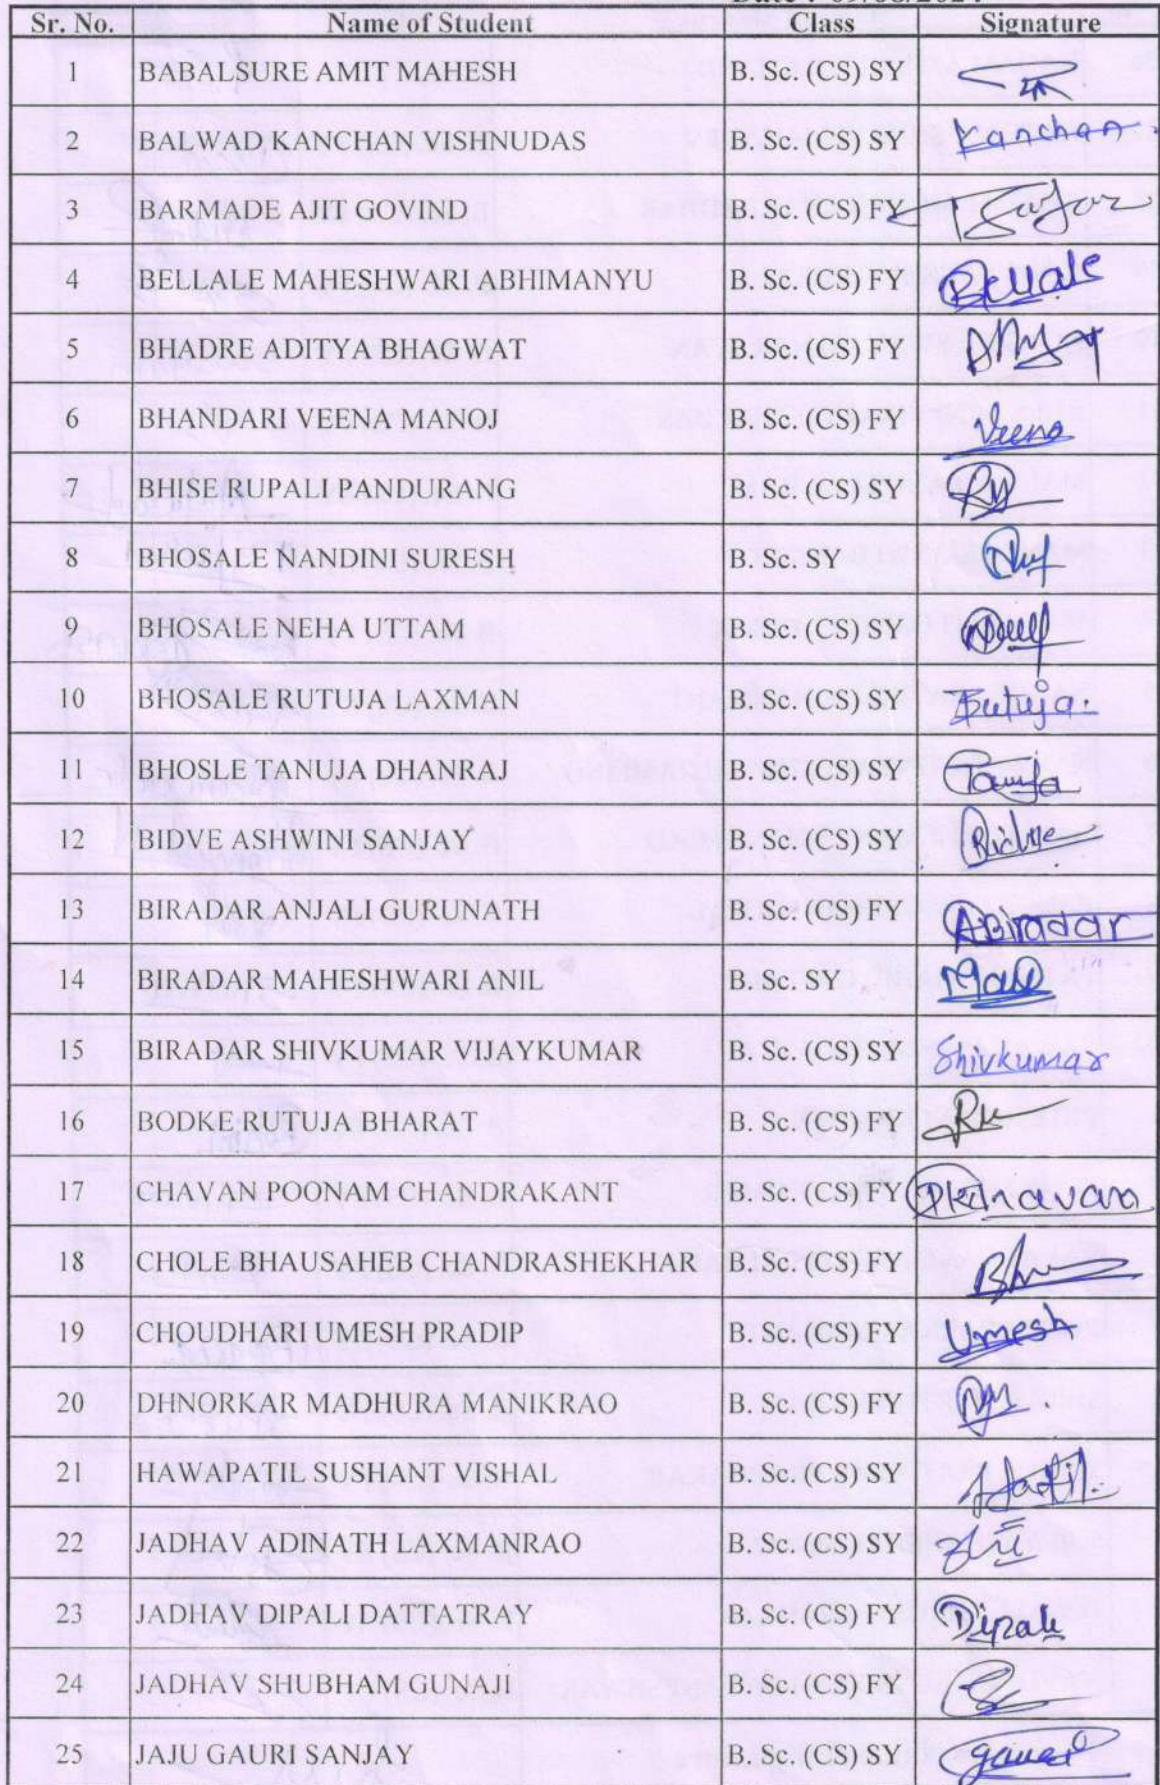 Sr. No. Name of Student Class Signature
1 BABALSURE AMIT MAHESH B. Sc. (CS) SY
2 BALWAD KANCHAN VISHNUDAS B. Sc. (CS) SY Kanchan
3 BARMADE AJIT GOVIND B. Sc. (CS) FY
4 BELLALE MAHESHWARI ABHIMANYU B. Sc. (CS) FY Bellale
5 BHADRE ADITYA BHAGWAT B. Sc. (CS) FY
6 BHANDARI VEENA MANOJ B. Sc. (CS) FY Veena
7 BHISE RUPALI PANDURANG B. Sc. (CS) SY
8 BHOSALE NANDINI SURESH B. Sc. SY
9 BHOSALE NEHA UTTAM B. Sc. (CS) SY
10 BHOSALE RUTUJA LAXMAN B. Sc. (CS) SY Rutuja.
11 BHOSLE TANUJA DHANRAJ B. Sc. (CS) SY Tanuja
12 BIDVE ASHWINI SANJAY B. Sc. (CS) SY Bidve
13 BIRADAR ANJALI GURUNATH B. Sc. (CS) FY ABiradar
14 BIRADAR MAHESHWARI ANIL B. Sc. SY
15 BIRADAR SHIVKUMAR VIJAYKUMAR B. Sc. (CS) SY Shivkumar
16 BODKE RUTUJA BHARAT B. Sc. (CS) FY
17 CHAVAN POONAM CHANDRAKANT B. Sc. (CS) FY
18 CHOLE BHAUSAHEB CHANDRASHEKHAR B. Sc. (CS) FY
19 CHOUDHARI UMESH PRADIP B. Sc. (CS) FY Umesh
20 DHNORKAR MADHURA MANIKRAO B. Sc. (CS) FY
21 HAWAPATIL SUSHANT VISHAL B. Sc. (CS) SY
22 JADHAV ADINATH LAXMANRAO B. Sc. (CS) SY
23 JADHAV DIPALI DATTATRAY B. Sc. (CS) FY Dipali
24 JADHAV SHUBHAM GUNAJI B. Sc. (CS) FY
25 JAJU GAURI SANJAY B. Sc. (CS) SY gauri